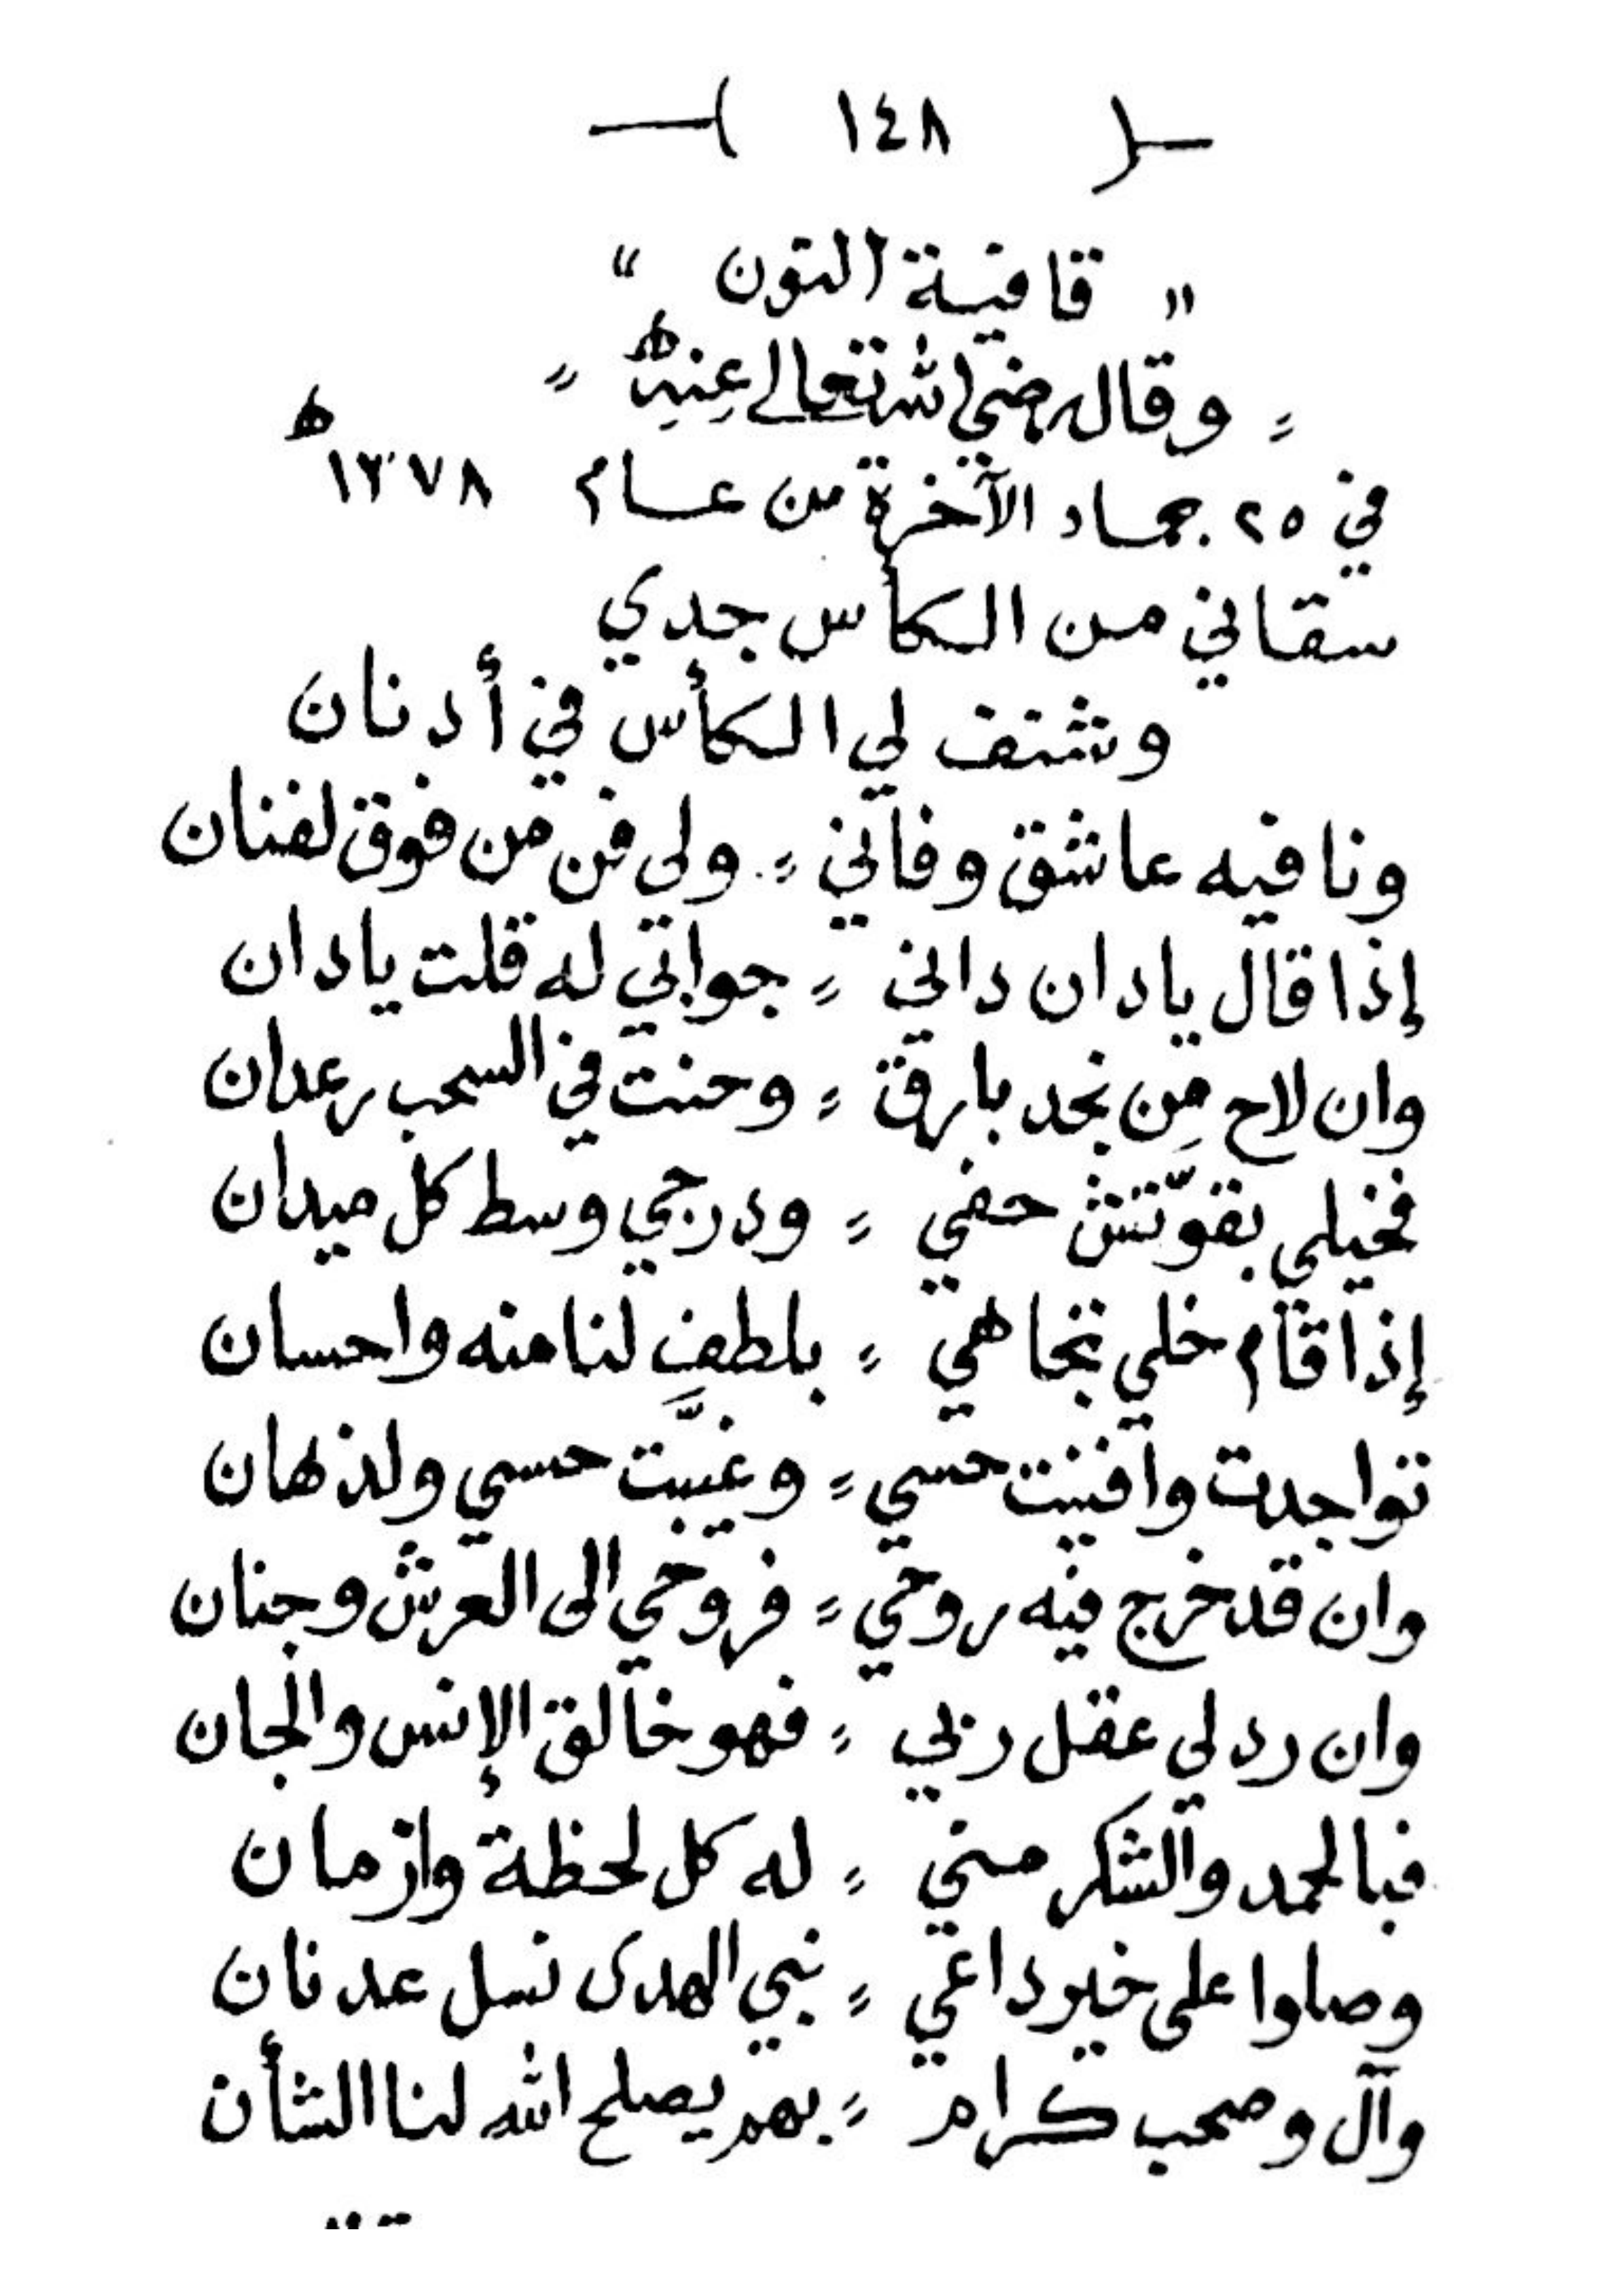 —( ١٤٨ )—
" قافية النون "
= وقال رضي الله تعالى عنه =
في ٢٥ جماد الآخرة من عام ١٣٧٨ ھ
سقاني من الكأس جدي
وشنف لي الكأس في أدنان
ونا فيه عاشق وفاني = ولى فن من فوق لفنان
إذا قال يادان داني = جوابي له قلت يادان
وان لاح مِن نجد بارق = وحنت في السحب رعدان
فخيلي حفي = ودرجي وسط كل ميدان
إذا قام خلي تجاهي = بلطفٍ لنا منه واحسان
تواجدت وافنيت حسي = وغيَّبت حسي ولذهان
وان قد خرج فيه روحي = فروحي الى العرش وجنان
وان رد لي عقل ربي = فهو خالق الإنس والجان
فبالحمد والشكر مني = له كل لحظة وازمان
وصلوا على خير داعي = نبي الهدى نسل عدنان
وآل وصحب كرام = بهم يصلح الله لنا الشأن